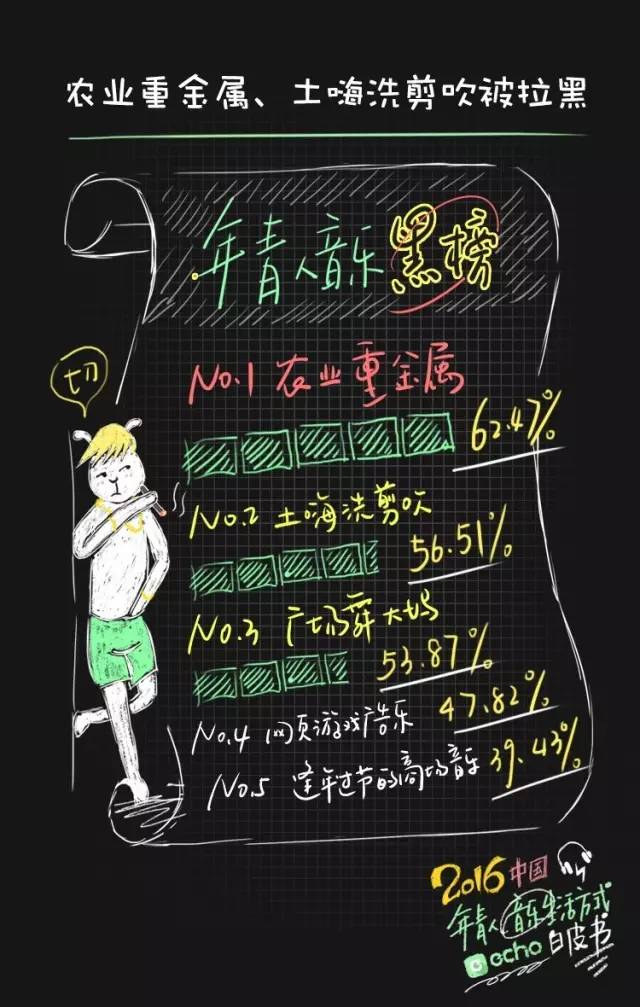 农业重金属、土嗨洗剪吹被拉黑
年青人音乐黑榜
切
No.1 农业重金属
62.47%
No.2 土嗨洗剪吹
56.51%
No.3 广场舞大妈
53.87%
No.4 网页游戏广告乐
47.82%
No.5 逢年过节的商场音乐
39.43%
2016中国
年青人音乐生活方式
echo白皮书